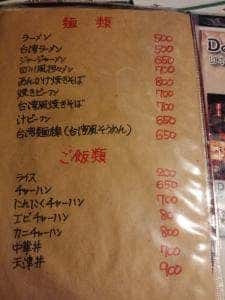 麺 類
ラーメン 500
台湾ラーメン 500
ジャージャーメン 650
四川風タンメン 700
あんかけ焼きそば 800
焼きビーフン 700
台湾風焼きそば 700
汁ビーフン 650
台湾麺線(台湾風そうめん) 650
ご飯類
ライス 200
チャーハン 650
にんにくチャーハン 700
エビチャーハン 80
カニチャーハン 80
中華丼 700
天津丼 900